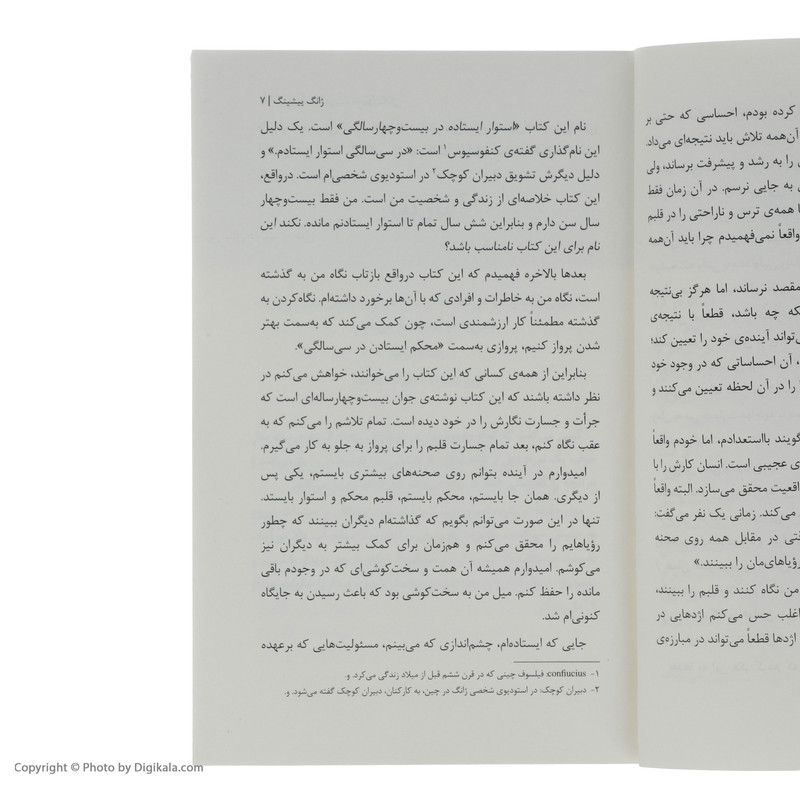 کرده بودم، احساسی که حتی بر
آن‌همه تلاش باید نتیجه‌ای می‌داد.
را به رشد و پیشرفت برساند، ولی
به جایی نرسم. در آن زمان فقط
همه‌ی ترس و ناراحتی را در قلبم
واقعاً نمی‌فهمیدم چرا باید آن‌همه
مقصد نرساند، اما هرگز بی‌نتیجه
چه باشد، قطعاً با نتیجه‌ی
آینده‌ی خود را تعیین کند؛
آن احساساتی که در وجود خود
را در آن لحظه تعیین می‌کنند و
گویند بااستعدادم، اما خودم واقعاً
عجیبی است. انسان کارش را با
محقق می‌سازد. البته واقعاً
می‌کند. زمانی یک نفر می‌گفت:
در مقابل همه روی صحنه
رؤیاهای‌مان را ببینند.»
من نگاه کنند و قلبم را ببینند،
اغلب حس می‌کنم اژدهایی در
اژدها قطعاً می‌تواند در مبارزه‌ی
ژانگ ییشینگ | ۷
نام این کتاب «استوار ایستاده در بیست‌وچهارسالگی» است. یک دلیل
این نام‌گذاری گفته‌ی کنفوسیوس۱ است: «در سی‌سالگی استوار ایستادم.» و
دلیل دیگرش تشویق دبیران کوچک۲ در استودیوی شخصی‌ام است. درواقع،
این کتاب خلاصه‌ای از زندگی و شخصیت من است. من فقط بیست‌وچهار
سال سن دارم و بنابراین شش سال تمام تا استوار ایستادنم مانده. نکند این
نام برای این کتاب نامناسب باشد؟
بعدها بالاخره فهمیدم که این کتاب درواقع بازتاب نگاه من به گذشته
است، نگاه من به خاطرات و افرادی که با آن‌ها برخورد داشته‌ام. نگاه‌کردن به
گذشته مطمئناً کار ارزشمندی است، چون کمک می‌کند که به‌سمت بهتر
شدن پرواز کنیم، پروازی به‌سمت «محکم ایستادن در سی‌سالگی».
بنابراین از همه‌ی کسانی که این کتاب را می‌خوانند، خواهش می‌کنم در
نظر داشته باشند که این کتاب نوشته‌ی جوان بیست‌وچهارساله‌ای است که
جرأت و جسارت نگارش را در خود دیده است. تمام تلاشم را می‌کنم که به
عقب نگاه کنم، بعد تمام جسارت قلبم را برای پرواز به جلو به کار می‌گیرم.
امیدوارم در آینده بتوانم روی صحنه‌های بیشتری بایستم، یکی پس
از دیگری. همان جا بایستم، محکم بایستم، قلبم محکم و استوار بایستد.
تنها در این صورت می‌توانم بگویم که گذاشته‌ام دیگران ببینند که چطور
رؤیاهایم را محقق می‌کنم و هم‌زمان برای کمک بیشتر به دیگران نیز
می‌کوشم. امیدوارم همیشه آن همت و سخت‌کوشی‌ای که در وجودم باقی
مانده را حفظ کنم. میل من به سخت‌کوشی بود که باعث رسیدن به جایگاه
کنونی‌ام شد.
جایی که ایستاده‌ام، چشم‌اندازی که می‌بینم، مسئولیت‌هایی که برعهده
۱- confiucius: فیلسوف چینی که در قرن ششم قبل از میلاد زندگی می‌کرد. و.
۲- دبیران کوچک: در استودیوی شخصی ژانگ در چین، به کارکنان، دبیران کوچک گفته می‌شود. و.
Copyright © Photo by Digikala.com